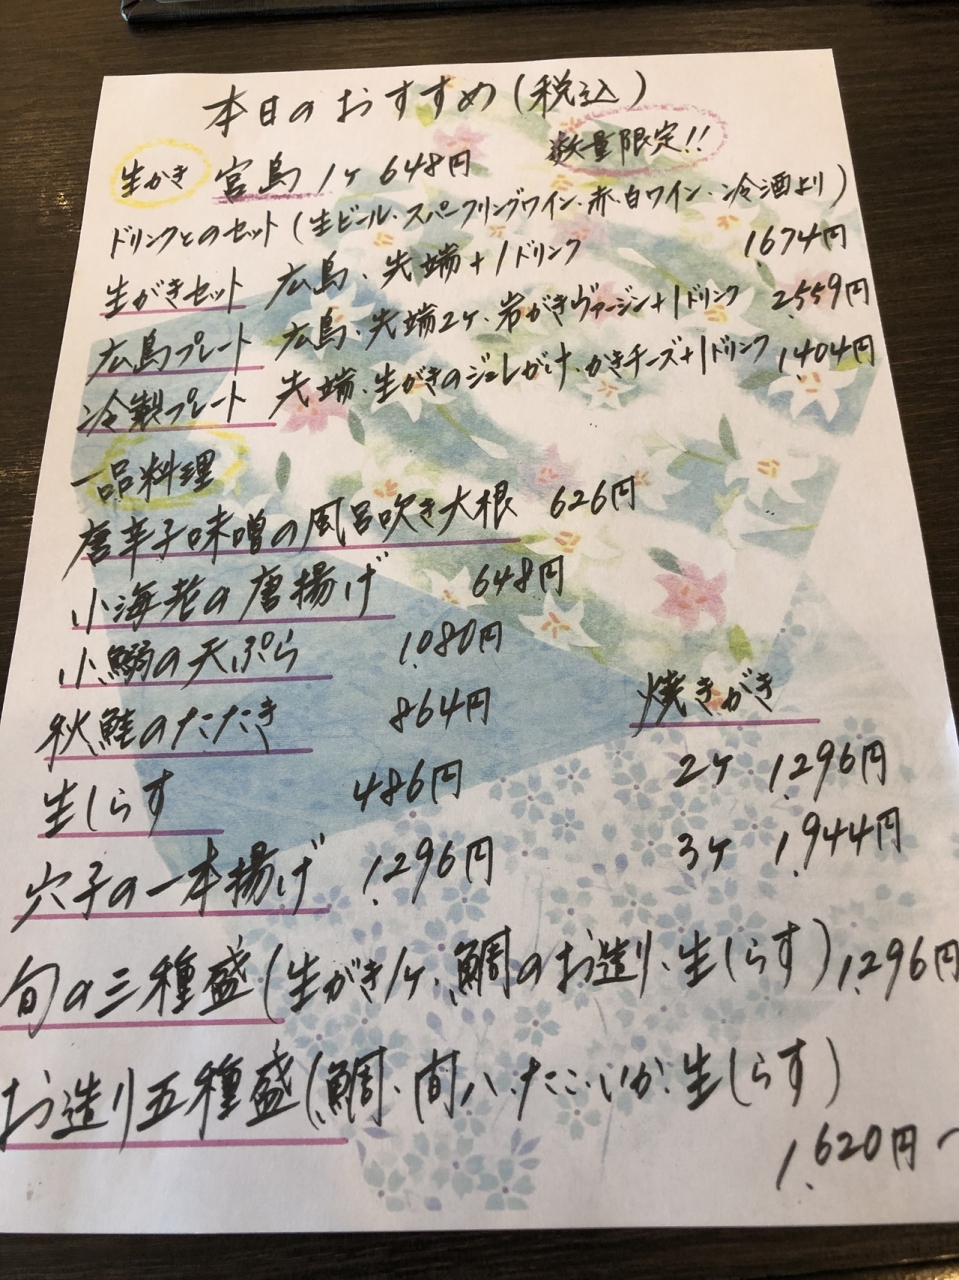 本日のおすすめ(税込)
数量限定!!
生かき 宮島 1ヶ 648円
ドリンクとのセット (生ビール・スパークリングワイン・赤・白ワイン・冷酒より)
生がきセット 広島・先端+1ドリンク 1674円
広島プレート 広島・先端2ヶ・岩がきヴァージン+1ドリンク 2,559円
冷製プレート 先端・生がきのジュレがけ・かきチーズ+1ドリンク 1,404円
一品料理
唐辛子味噌の風呂吹き大根 626円
小海老の唐揚げ 648円
小鰯の天ぷら 1,080円
秋鮭のたたき 864円
生しらす 486円
穴子の一本揚げ 1,296円
焼きがき
2ヶ 1,296円
3ヶ 1,944円
旬の三種盛(生がき1ヶ・鯛のお造り・生しらす) 1,296円
お造り五種盛(鯛・間八・たこ・いか・生しらす)
1,620円~